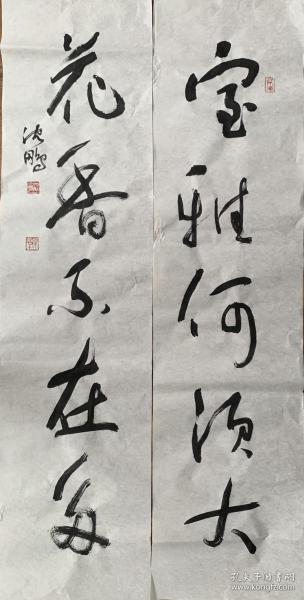 室雅何须大
花香不在多
沈鹏
孔夫子旧书网
www.kongfz.com